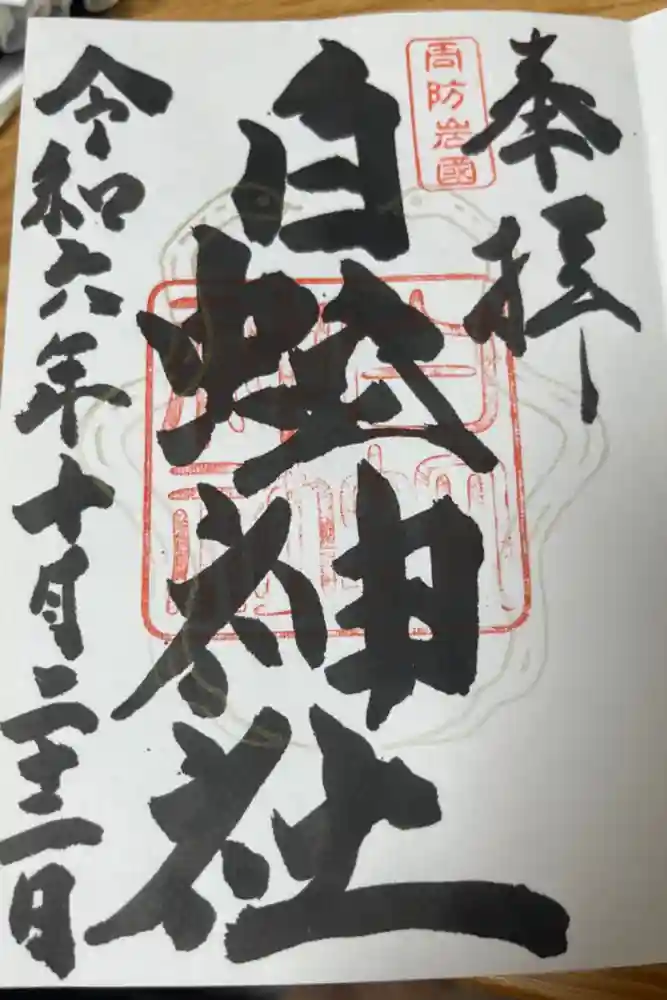 奉拝
周防岩國
白蛇神社
令和六年十月二十二日